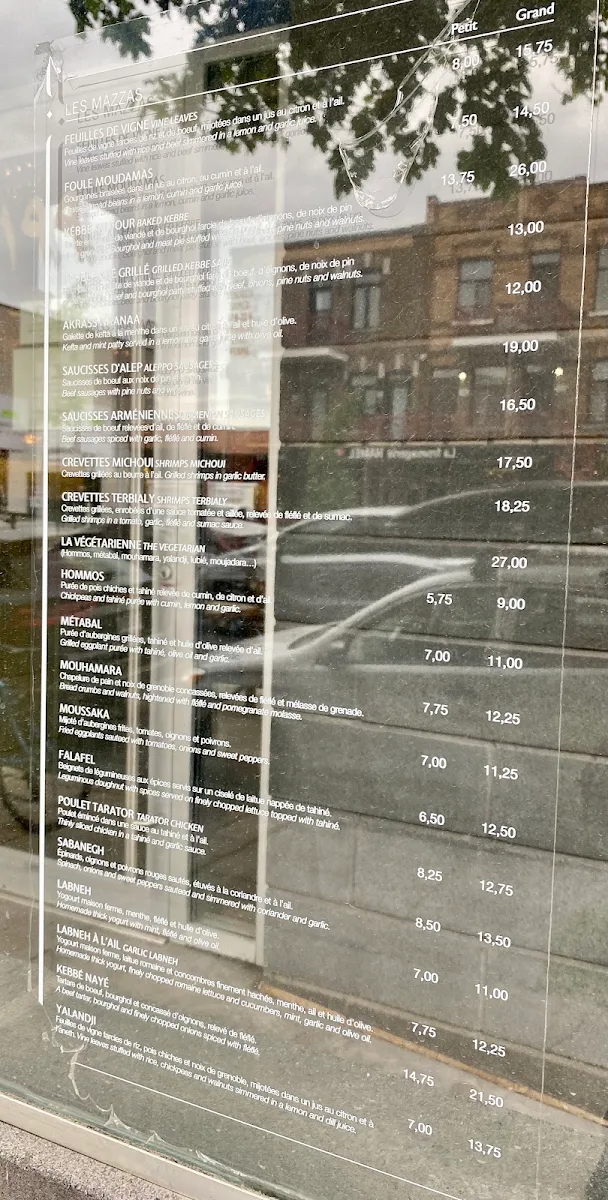 Petit Grand
LES MAZZAS
FEUILLES DE VIGNE VINE LEAVES 8,00 15,75
Feuilles de vigne farcies de riz et du boeuf, mijotées dans un jus au citron et à l'ail.
Vine leaves stuffed with rice and beef simmered in a lemon and garlic juice.
FOULE MOUDAMAS 50 14,50
Gourganes braisées dans un jus au citron, au cumin et à l'ail.
beans in a lemon, cumin and garlic juice.
KEBBÉ FOUR BAKED KEBBE 13,75 26,00
de viande et de bourghol farcie d'oignons, de noix de pin
bourghol and meat pie stuffed pine nuts and walnuts.
GRILLÉ GRILLED KEBBE 13,00
de viande et de bourghol boeuf, d'oignons, de noix de pin
beef and bourghol beef, onions, pine nuts and walnuts.
AKRASS NANAA 12,00
Galette de kefta à la menthe dans un jus ail et huile d'olive.
Kefta and mint patty served in a lemon with olive oil.
SAUCISSES D'ALEP ALEPPO SAUSAGES 19,00
Saucisses de boeuf aux noix de pin
Beef sausages with pine nuts and
SAUCISSES ARMÉNIENNES SAUSAGES 16,50
Saucisses de boeuf relevées d'ail, de fléflé et de cumin.
Beef sausages spiced with garlic, fléflé and cumin.
CREVETTES MICHOUI SHRIMPS MICHOUI 17,50
Crevettes grillées au beurre à l'ail. Grilled shrimps in garlic butter.
CREVETTES TERBIALY SHRIMPS TERBIALY 18,25
Crevettes grillées, enrobées d'une sauce tomatée et aillée, relevée de fléflé et de sumac.
Grilled shrimps in a tomato, garlic, fléflé and sumac sauce.
LA VÉGÉTARIENNE THE VEGETARIAN 27,00
(Hommos, métabal, mouhamara, yalandji, lubié, moujadara...)
HOMMOS 5,75 9,00
Purée de pois chiches et tahiné relevée de cumin, de citron et d'ail.
Chickpeas and tahiné purée with cumin, lemon and garlic.
MÉTABAL 7,00 11,00
Purée d'aubergines grillées, tahiné et huile d'olive relevée d'ail.
Grilled eggplant purée with tahiné, olive oil and garlic.
MOUHAMARA 7,75 12,25
Chapelure de pain et noix de grenoble concassées, relevées de fléflé et mélasse de grenade.
Bread crumbs and walnuts, hightened with fléflé and pomegranate molasse.
MOUSSAKA 7,00 11,25
Mijoté d'aubergines frites, tomates, oignons et poivrons.
Fried eggplants sauteed with tomatoes, onions and sweet peppers.
FALAFEL 6,50 12,50
Beignets de légumineuses aux épices servis sur un ciselé de laitue nappée de tahiné.
Leguminous doughnut with spices served on finely chopped lettuce topped with tahiné.
POULET TARATOR TARATOR CHICKEN 8,25 12,75
Poulet émincé dans une sauce au tahiné et à l'ail.
Thinly sliced chicken in a tahiné and garlic sauce.
SABANEGH 8,50 13,50
Épinards, oignons et poivrons rouges sautés, étuvés à la coriandre et à l'ail.
Spinach, onions and sweet peppers sauteed and simmered with coriander and garlic.
LABNEH 7,00 11,00
Yogourt maison ferme, menthe, fléflé et huile d'olive.
Homemade thick yogurt with mint, fléflé and olive oil.
LABNEH À L'AIL GARLIC LABNEH 7,75 12,25
Yogourt maison ferme, laitue romaine et concombres finement hachés, menthe, ail et huile d'olive.
Homemade thick yogurt, finely chopped romaine lettuce and cucumbers, mint, garlic and olive oil.
KEBBÉ NAYÉ 14,75 21,50
Tartare de boeuf, bourghol et concassé d'oignons, relevé de fléflé.
A beef tartar, bourghol and finely chopped onions spiced with fléflé.
YALANDJI 7,00 13,75
Feuilles de vigne farcies de riz, pois chiches et noix de grenoble, mijotées dans un jus au citron et à
l'aneth. Vine leaves stuffed with rice, chickpeas and walnuts simmered in a lemon and dill juice.